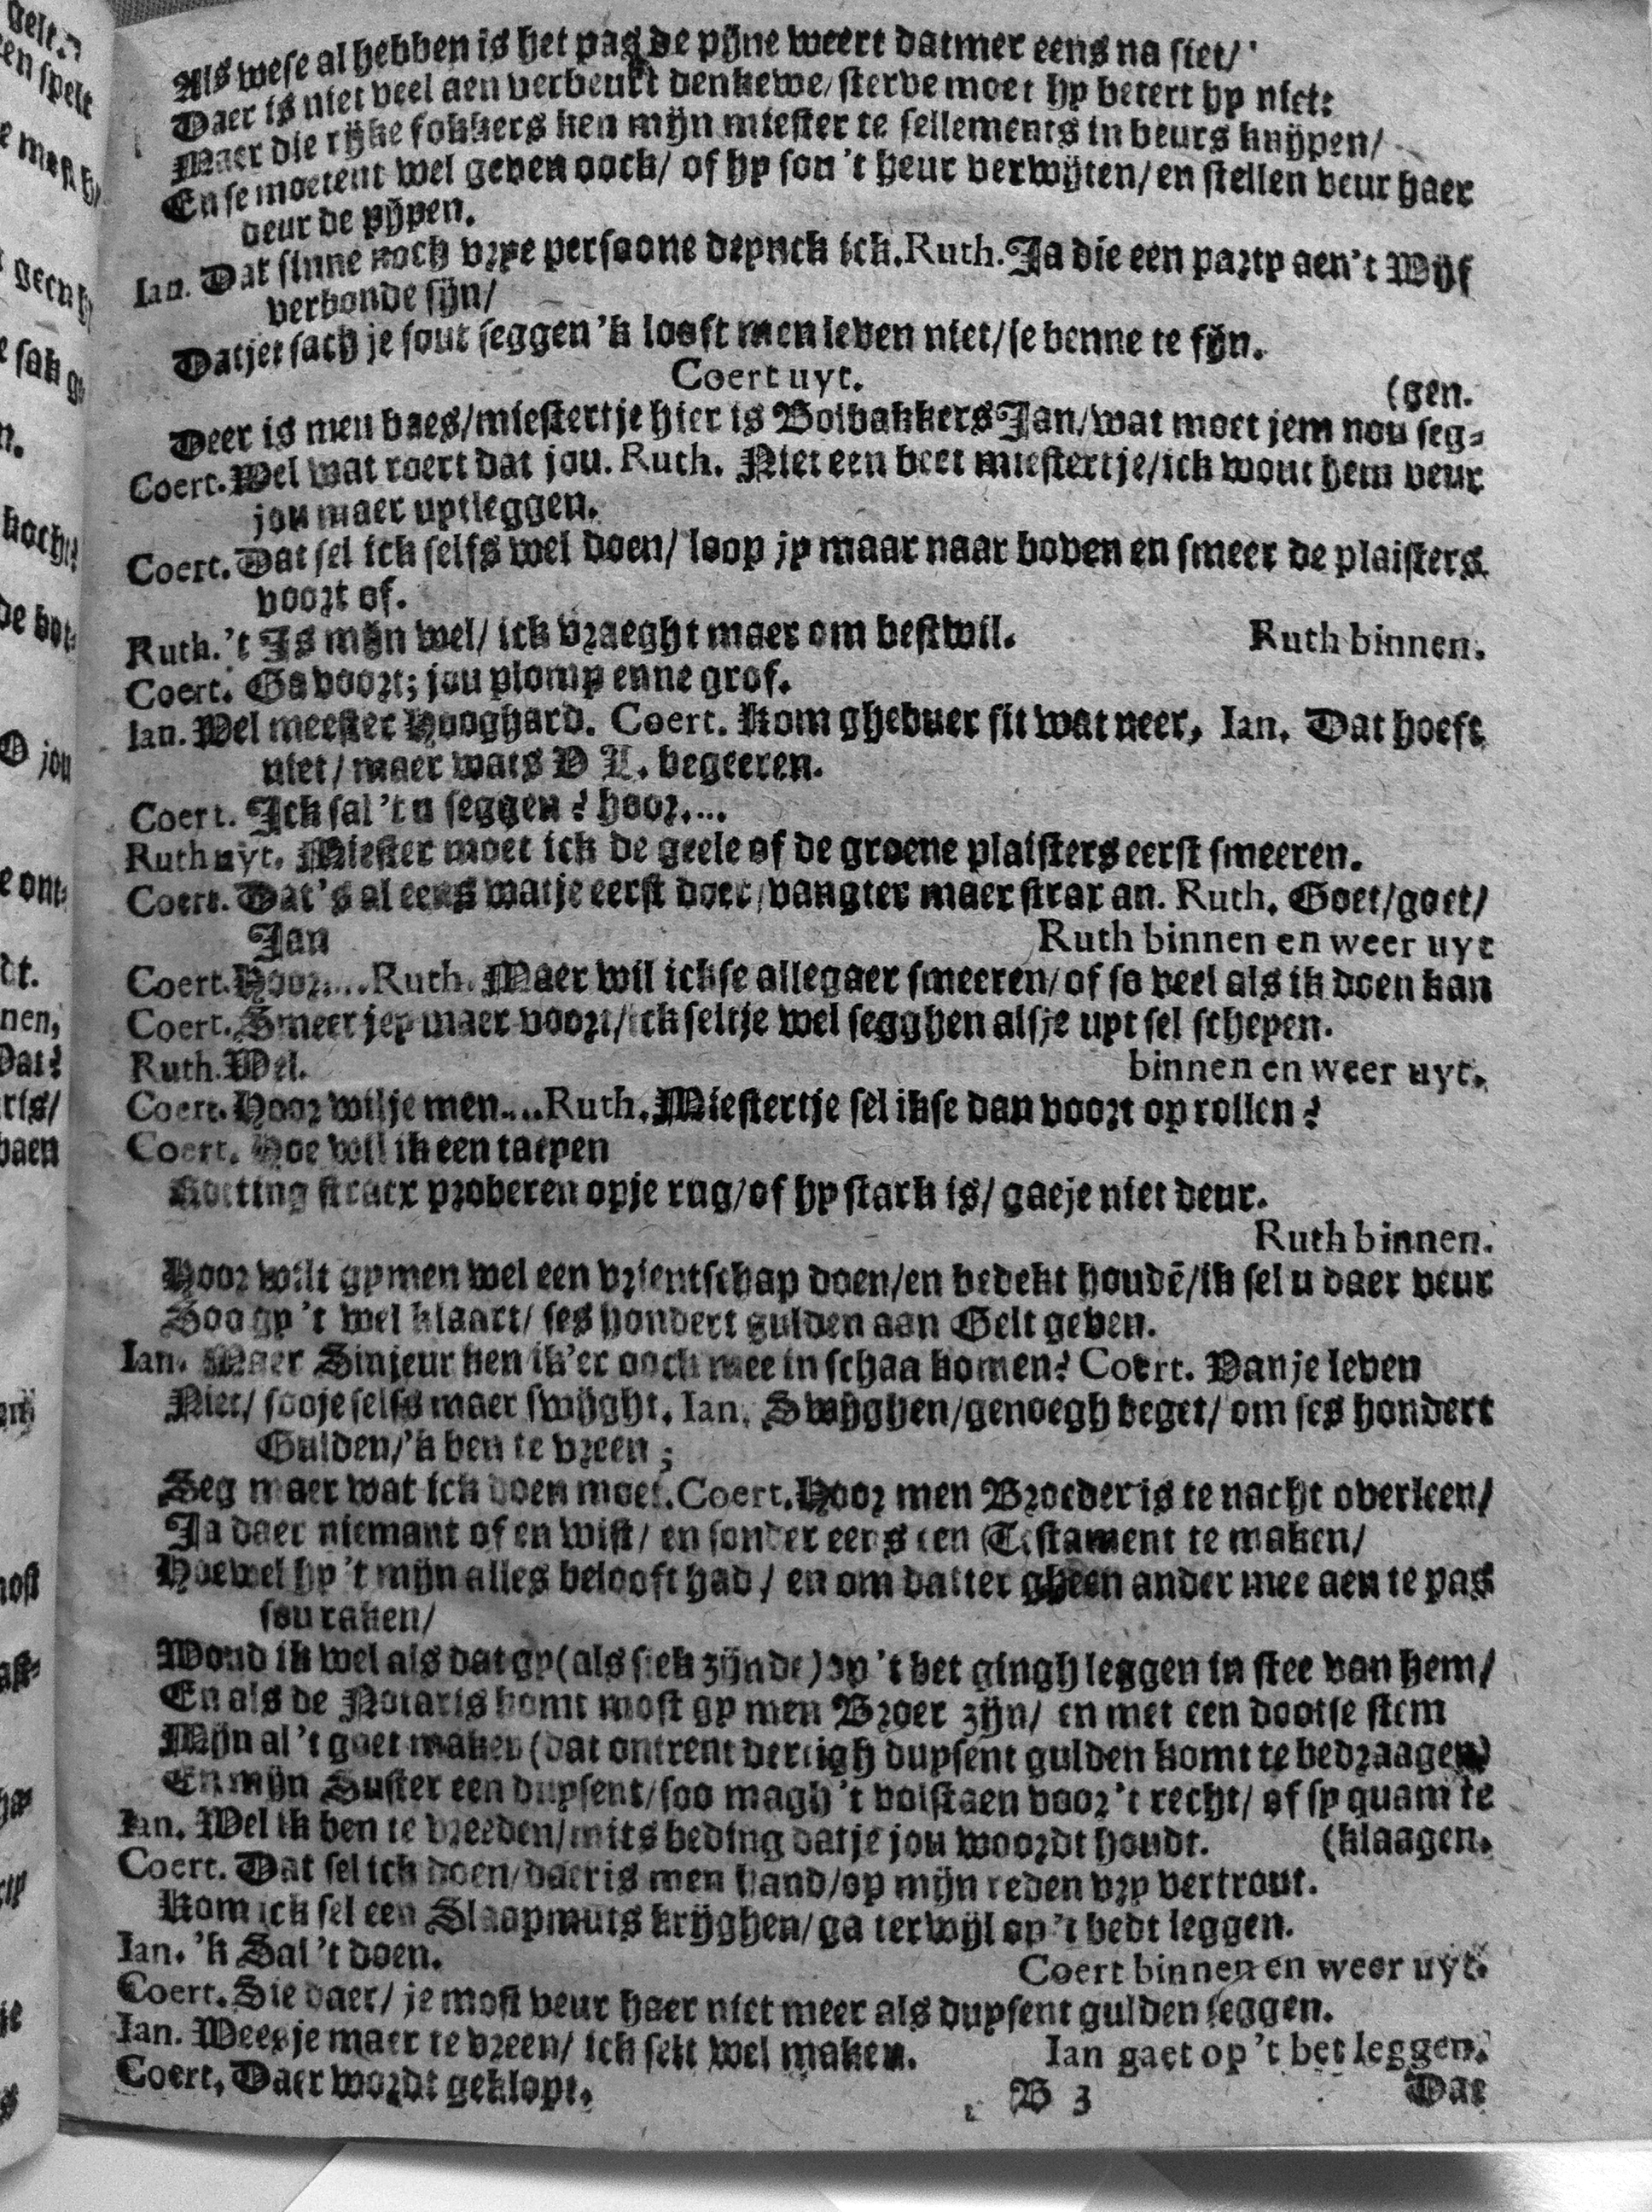 Als wese al hebben is het pas de pijne weert datmer eens na siet/
Daer is niet veel aen verbeurt denkewe/sterve moet hy betert hy niet:
Maer die rijke fokkers ken mijn miester te sellements in beurs knijpen/
En se moetent wel geven oock/ of hy sou 't heur verwijten/en stellen veur haer
deur de pijpen.
Ian. Dat sinne noch vrye persoone deynck ick. Ruth. Ja die een party aen't Wijf
verbonde sijn/
Datjet sach je sout seggen 'k looft men leven niet/se benne te fijn.
Coert uyt.
(gen.
Deer is men baes/miestertje hier is Bolbakkers Jan/wat moet jem nou seg-
Coert. Wel wat roert dat jou. Ruth. Niet een beet miestertje/ick wout hem veur
jou maer uytleggen.
Coert. Dat sel ick selfs wel doen/ loop jy maar naar boven en smeer de plaisters
voort of.
Ruth. 't Is mijn wel/ ick vraeght maer om bestwil. Ruth binnen.
Coert. Ga voort; jou plomp enne grof.
Ian. Wel meester Hooghard. Coert. Kom ghebuer sit wat neer, Ian. Dat hoeft
niet/ maer wats V L. begeeren.
Coert. Ick sal 't u seggen? hoor....
Ruth uyt. Miester moet ick de geele of de groene plaisters eerst smeeren.
Coert. Dat's al eens watje eerst doet/vangter maer strax an. Ruth. Goet/goet/
Jan Ruth binnen en weer uyt
Coert. Hoor.... Ruth. Maer wil ickse allegaer smeeren/of so veel als ik doen kan
Coert. Smeer jey maer voort/ick seltje wel segghen alsje uyt sel scheyen.
Ruth. Wel. binnen en weer uyt.
Coert. Hoor wilje men.... Ruth. Miestertje sel ikse dan voort oprollen?
Coert. Hoe wil ik een taeyen
Rotting straex proberen opje rug/of hy stark is/ gaeje niet deur.
Ruth binnen.
Hoor wilt gymen wel een vrientschap doen/en bedekt houdē/ik sel u daer veur
Soo gy 't wel klaart/ ses hondert gulden aan Gelt geven.
Ian. Maer Sinjeur ken ik'er ooch mee in schaa komen? Coert. Van je leven
Niet/ sooje selfs maer swijght. Ian. Swijghen/genoegh beget/ om ses hondert
Gulden/'k ben te vreen;
Seg maer wat ick doen moet. Coert. Hoor men Broeder is te nacht overleen/
Ja daer niemant of en wist/ en sonder eens een Testament te maken/
Hoewel hy 't mijn alles belooft had/ en om datter gheen ander mee aen te pas
sou raken/
Woud ik wel als dat gy (als siek zijnde) op 't bet gingh leggen in stee van hem/
En als de Notaris komt most gy men Broer zijn/ en met een dootse stem
Mijn al 't goet maken (dat ontrent dertigh duysent gulden komt te bedraagen)
En mijn Suster een duysent/soo magh 't volstaen voor 't recht/ of sy quam te
Ian. Wel ik ben te vreeden/mits beding datje jou woordt houdt. (klaagen.
Coert. Dat sel ick doen/daer is men hand/op mijn reden vry vertrout.
Kom ick sel een Slaapmuts krijghen/ga terwijl op 't bedt leggen.
Ian. 'k Sal 't doen. Coert binnen en weer uyt.
Coert. Sie daer/ je most veur haer niet meer als duysent gulden seggen.
Ian. Weesje maer te vreen/ ick selt wel maken. Ian gaet op 't bet leggen.
Coert. Daer wordt geklopt.
B 3 Dat